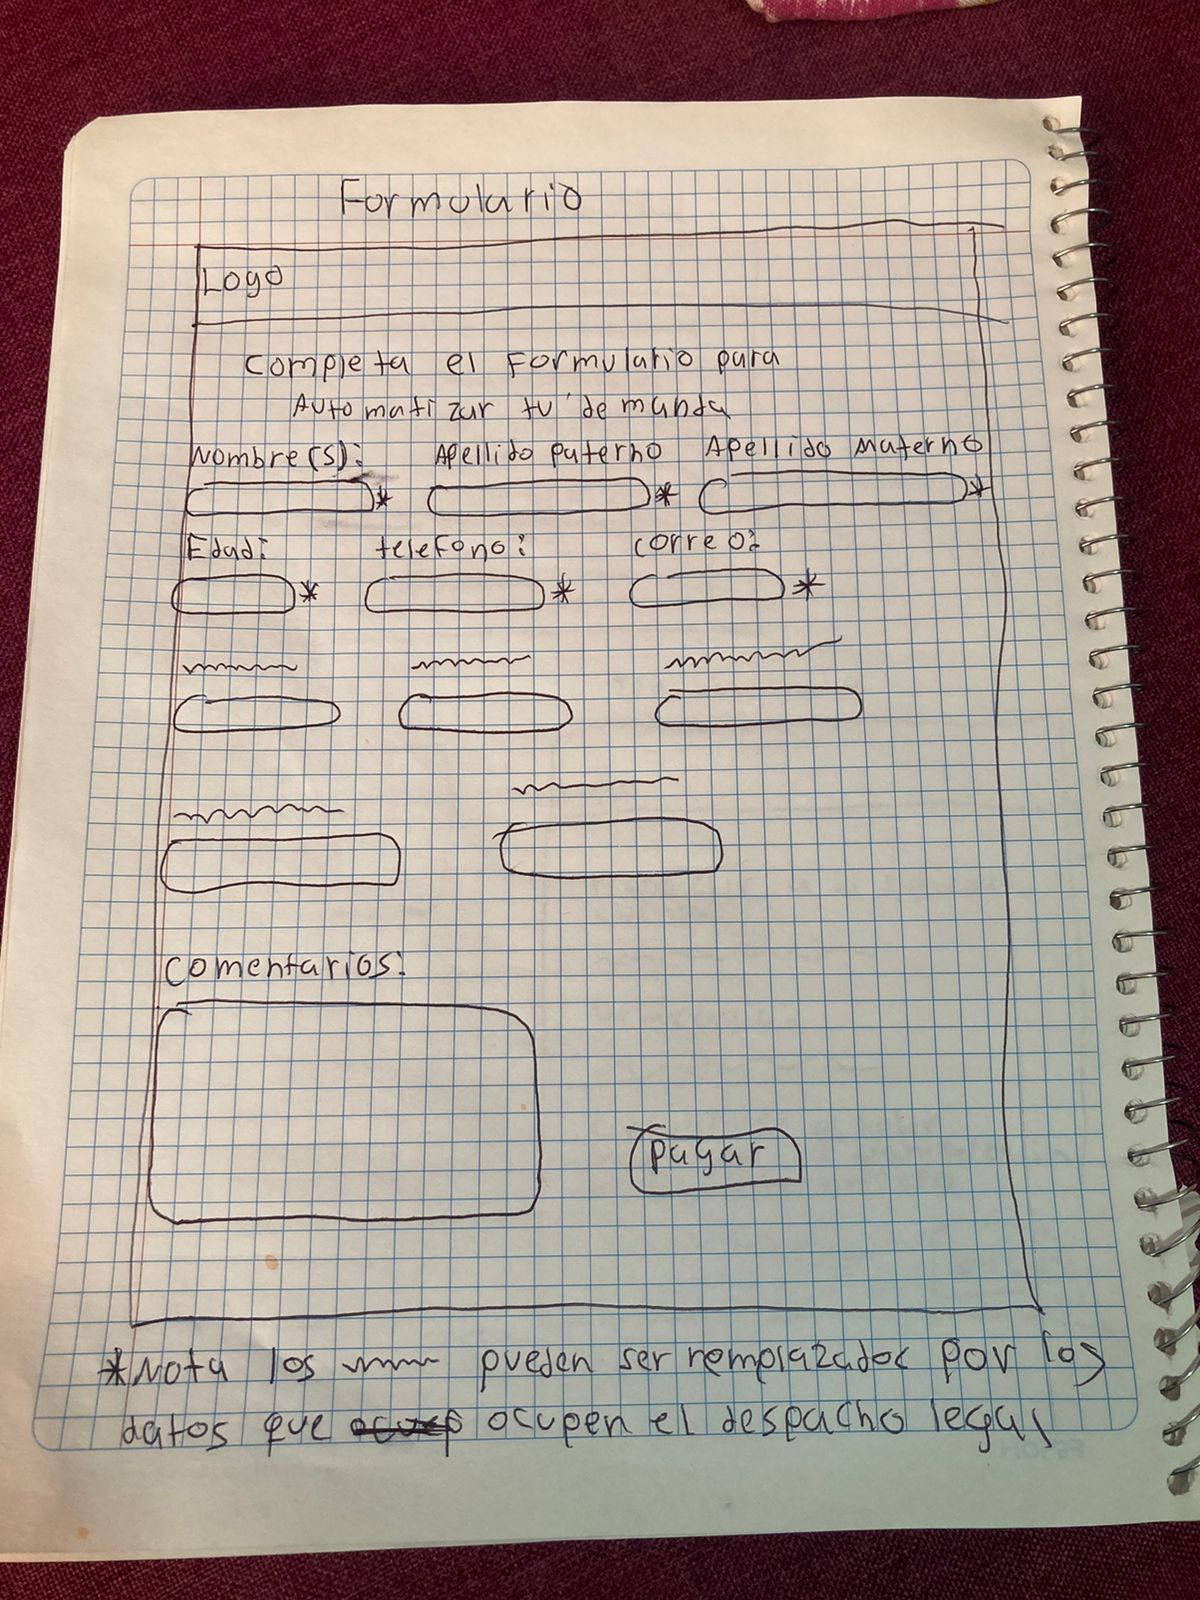 Formulario
Logo
Completa el Formulario para
Automatizar tu demanda
Nombre(s): Apellido Paterno Apellido Materno
* * *
Edad: telefono: correo:
* * *
comentarios:
pagar
*Nota los pueden ser remplazados por los
datos que ocupen el despacho legal